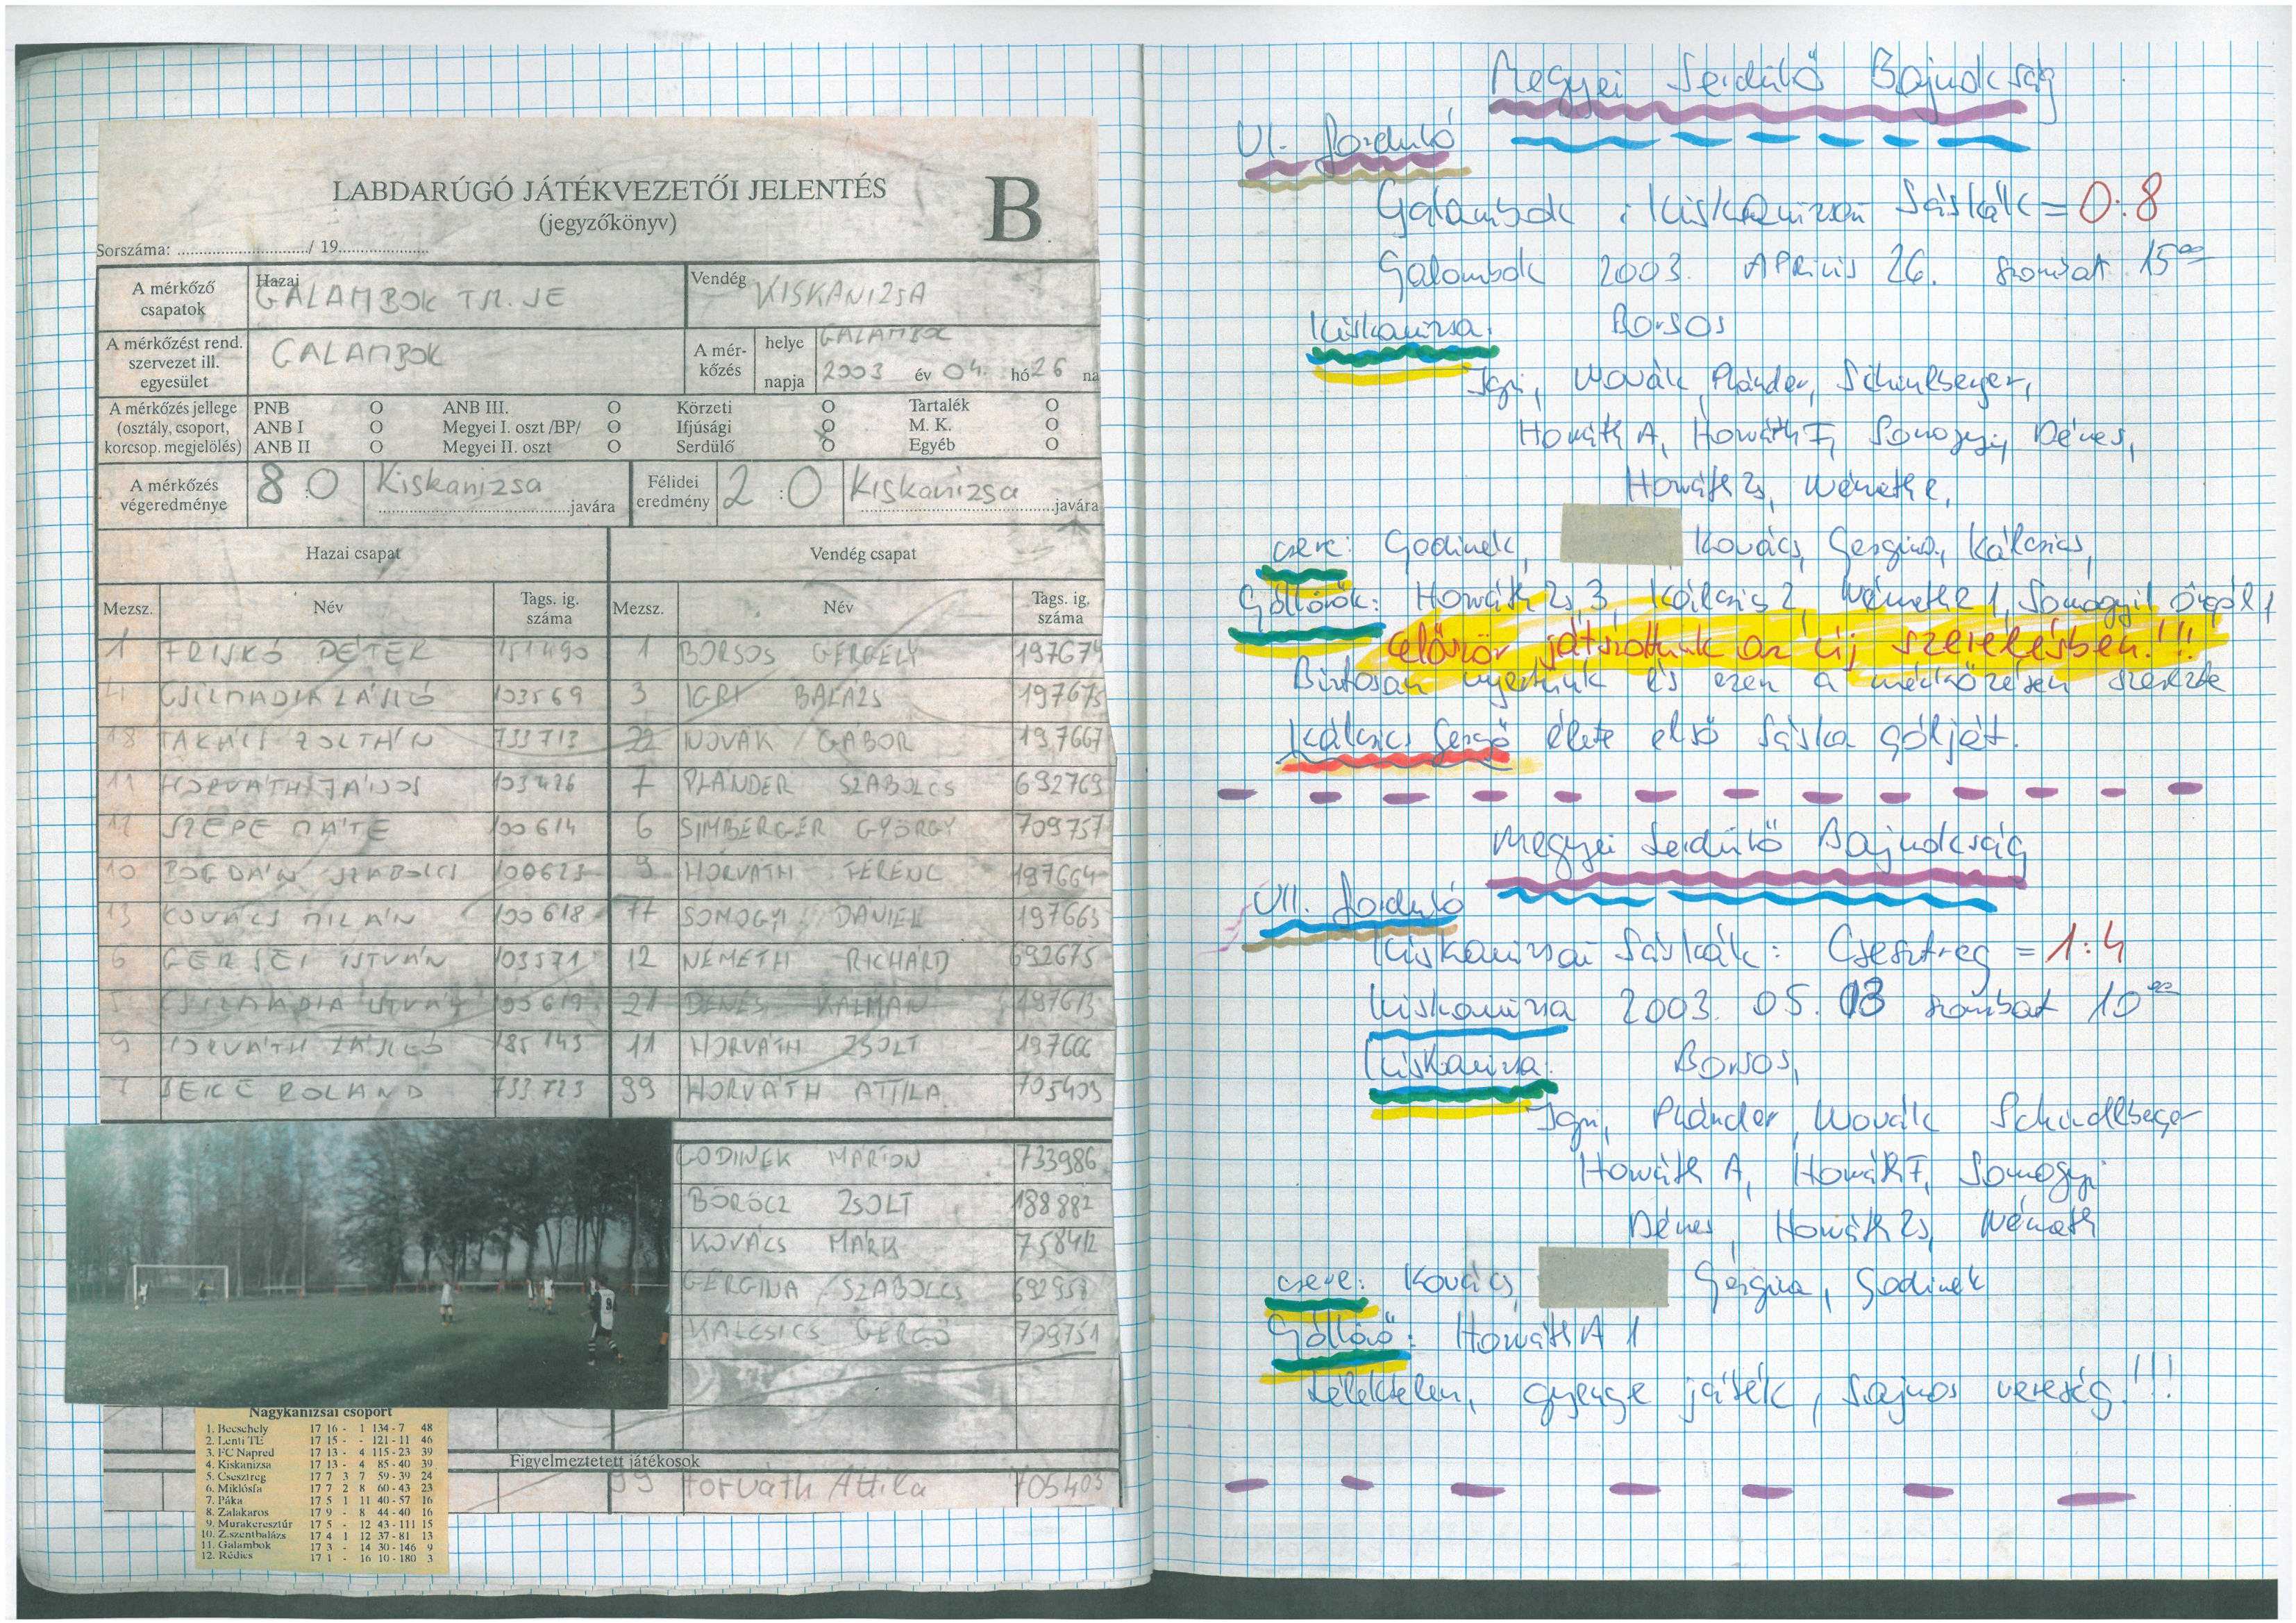 LABDARÚGÓ JÁTÉKVEZETŐI JELENTÉS
(jegyzőkönyv)
B
Sorszáma: ............................../ 19....................
A mérkőző csapatok Hazai GALAMBOK TM. SE Vendég KISKANIZSA
A mérkőzést rend. szervezet ill. egyesület GALAMBOK A mér-kőzés helye GALAMBOK
napja 2003 év 04. hó 26 na
A mérkőzés jellege (osztály, csoport, korcsop. megjelölés)
PNB O ANB III. O Körzeti O Tartalék O
ANB I O Megyei I. oszt /BP/ O Ifjúsági O M. K. O
ANB II O Megyei II. oszt O Serdülő O Egyéb O
A mérkőzés végeredménye 8:0 Kiskanizsa javára Félidei eredmény 2:0 Kiskanizsa javára
Hazai csapat Vendég csapat
Mezsz. Név Tags. ig. száma Mezsz. Név Tags. ig. száma
1 FRISKÓ PÉTER 151490 1 BORSOS GERGELY 197674
CSIZMADIA LÁSZLÓ 103569 3 IGRI BALÁZS 197675
18 TAKÁCS ZOLTÁN 733713 22 NOVÁK GÁBOR 197667
11 HORVÁTH JÁNOS 103426 7 PLÁNDER SZABOLCS 692769
12 SZÉPE MÁTÉ 100614 6 SIMBERGER GYÖRGY 709757
10 BOGDÁN SZABOLCS 100623 9 HORVÁTH FERENC 197664
13 KOVÁCS MILÁN 100618 77 SOMOGYI DÁNIEL 197663
6 GERSEI ISTVÁN 103571 12 NÉMETH RICHÁRD 692675
CSIZMADIA ISTVÁN 21 DÉNES KÁLMÁN 197673
9 HORVÁTH LÁSZLÓ 185143 11 HORVÁTH ZSOLT 197666
7 BEKE ROLAND 733723 99 HORVÁTH ATTILA 705403
GODINEK MARTON 733986
BÖRÖCZ ZSOLT 188882
KOVÁCS MÁRK 758412
GERGINA SZABOLCS 692958
KALCSICS GERGŐ 709751
Figyelmeztetett játékosok
99 Horváth Attila 705403
Nagykanizsai csoport
1. Becsehely 17 16 - 1 134-7 48
2. Lenti TE 17 15 - - 121-11 46
3. FC Napred 17 13 - 4 115-23 39
4. Kiskanizsa 17 13 - 4 85-40 39
5. Csesztreg 17 7 3 7 59-39 24
6. Miklósfa 17 7 2 8 60-43 23
7. Páka 17 5 1 11 40-57 16
8. Zalakaros 17 9 - 8 44-40 16
9. Murakeresztúr 17 5 - 12 43-111 15
10. Z.szentbalázs 17 4 1 12 37-81 13
11. Galambok 17 3 - 14 30-146 9
12. Rédics 17 1 - 16 10-180 3
Megyei Serdülő Bajnokság
VI. forduló
Galambok : Kiskanizsai Sáskák = 0:8
Galambok 2003. Április 26. szombat 15⁰⁰
Kiskanizsa: Borsos
Igri, Novák, Plánder, Schimlberger,
Horváth A, Horváth F, Somogyi, Dénes,
Horváth Zs, Németh R,
csere: Godinek, Kovács, Gergina, Kálcsics,
Góllövők: Horváth Zs 3, Kálcsics 2, Németh R 1, Somogyi 1 öngól 1
először játszottunk az új szerelésben!!!
Biztosan nyertünk és ezen a mérkőzésen szerezte
Kálcsics Gergő élete első Sáska gólját.
Megyei Serdülő Bajnokság
VII. forduló
Kiskanizsai Sáskák : Csesztreg = 1:4
Kiskanizsa 2003. 05. 03 szombat 10⁰⁰
Kiskanizsa: Borsos,
Igri, Plánder, Novák Schindlberger
Horváth A, Horváth F, Somogyi
Dénes, Horváth Zs, Németh
csere: Kovács, Gergina, Godinek
Góllövő: Horváth A 1
Lélektelen, gyenge játék, sajnos vereség!!!